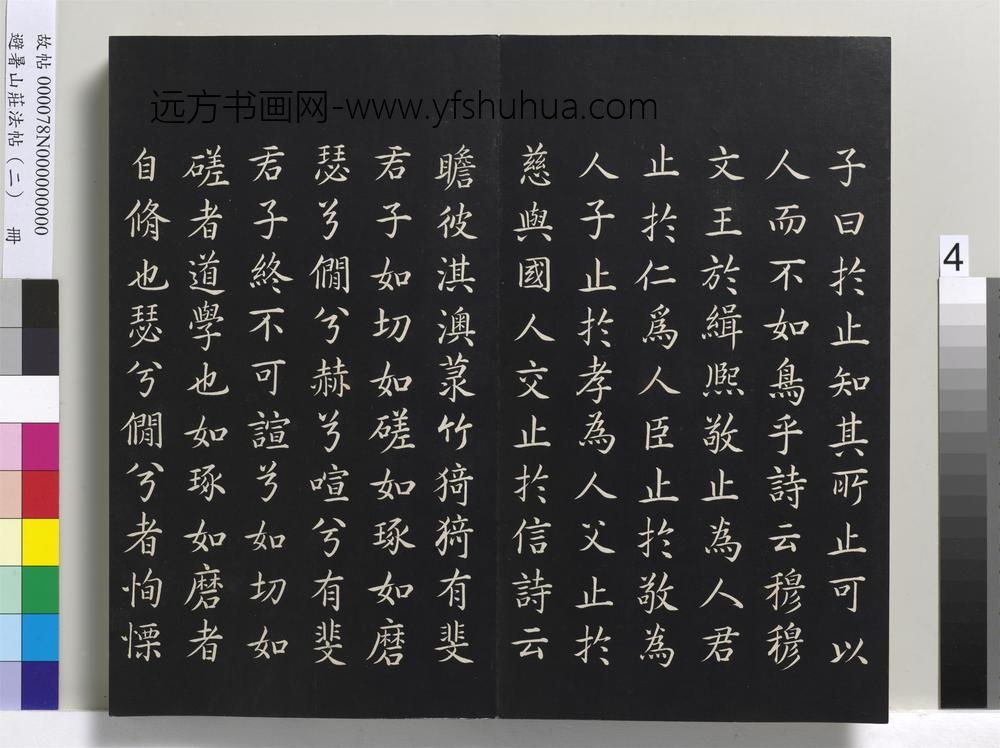 子曰於止知其所止可以
人而不如鳥乎詩云穆穆
文王於緝熈敬止為人君
止於仁爲人臣止於敬為
人子止於孝為人父止於
慈與國人交止於信詩云
瞻彼淇澳菉竹猗猗有斐
君子如切如磋如琢如磨
瑟兮僩兮赫兮喧兮有斐
君子終不可諠兮如切如
磋者道學也如琢如磨者
自脩也瑟兮僩兮者恂慄
远方书画网-www.yfshuhua.com
故帖 000078N000000000
避暑山莊法帖(二) 冊
4